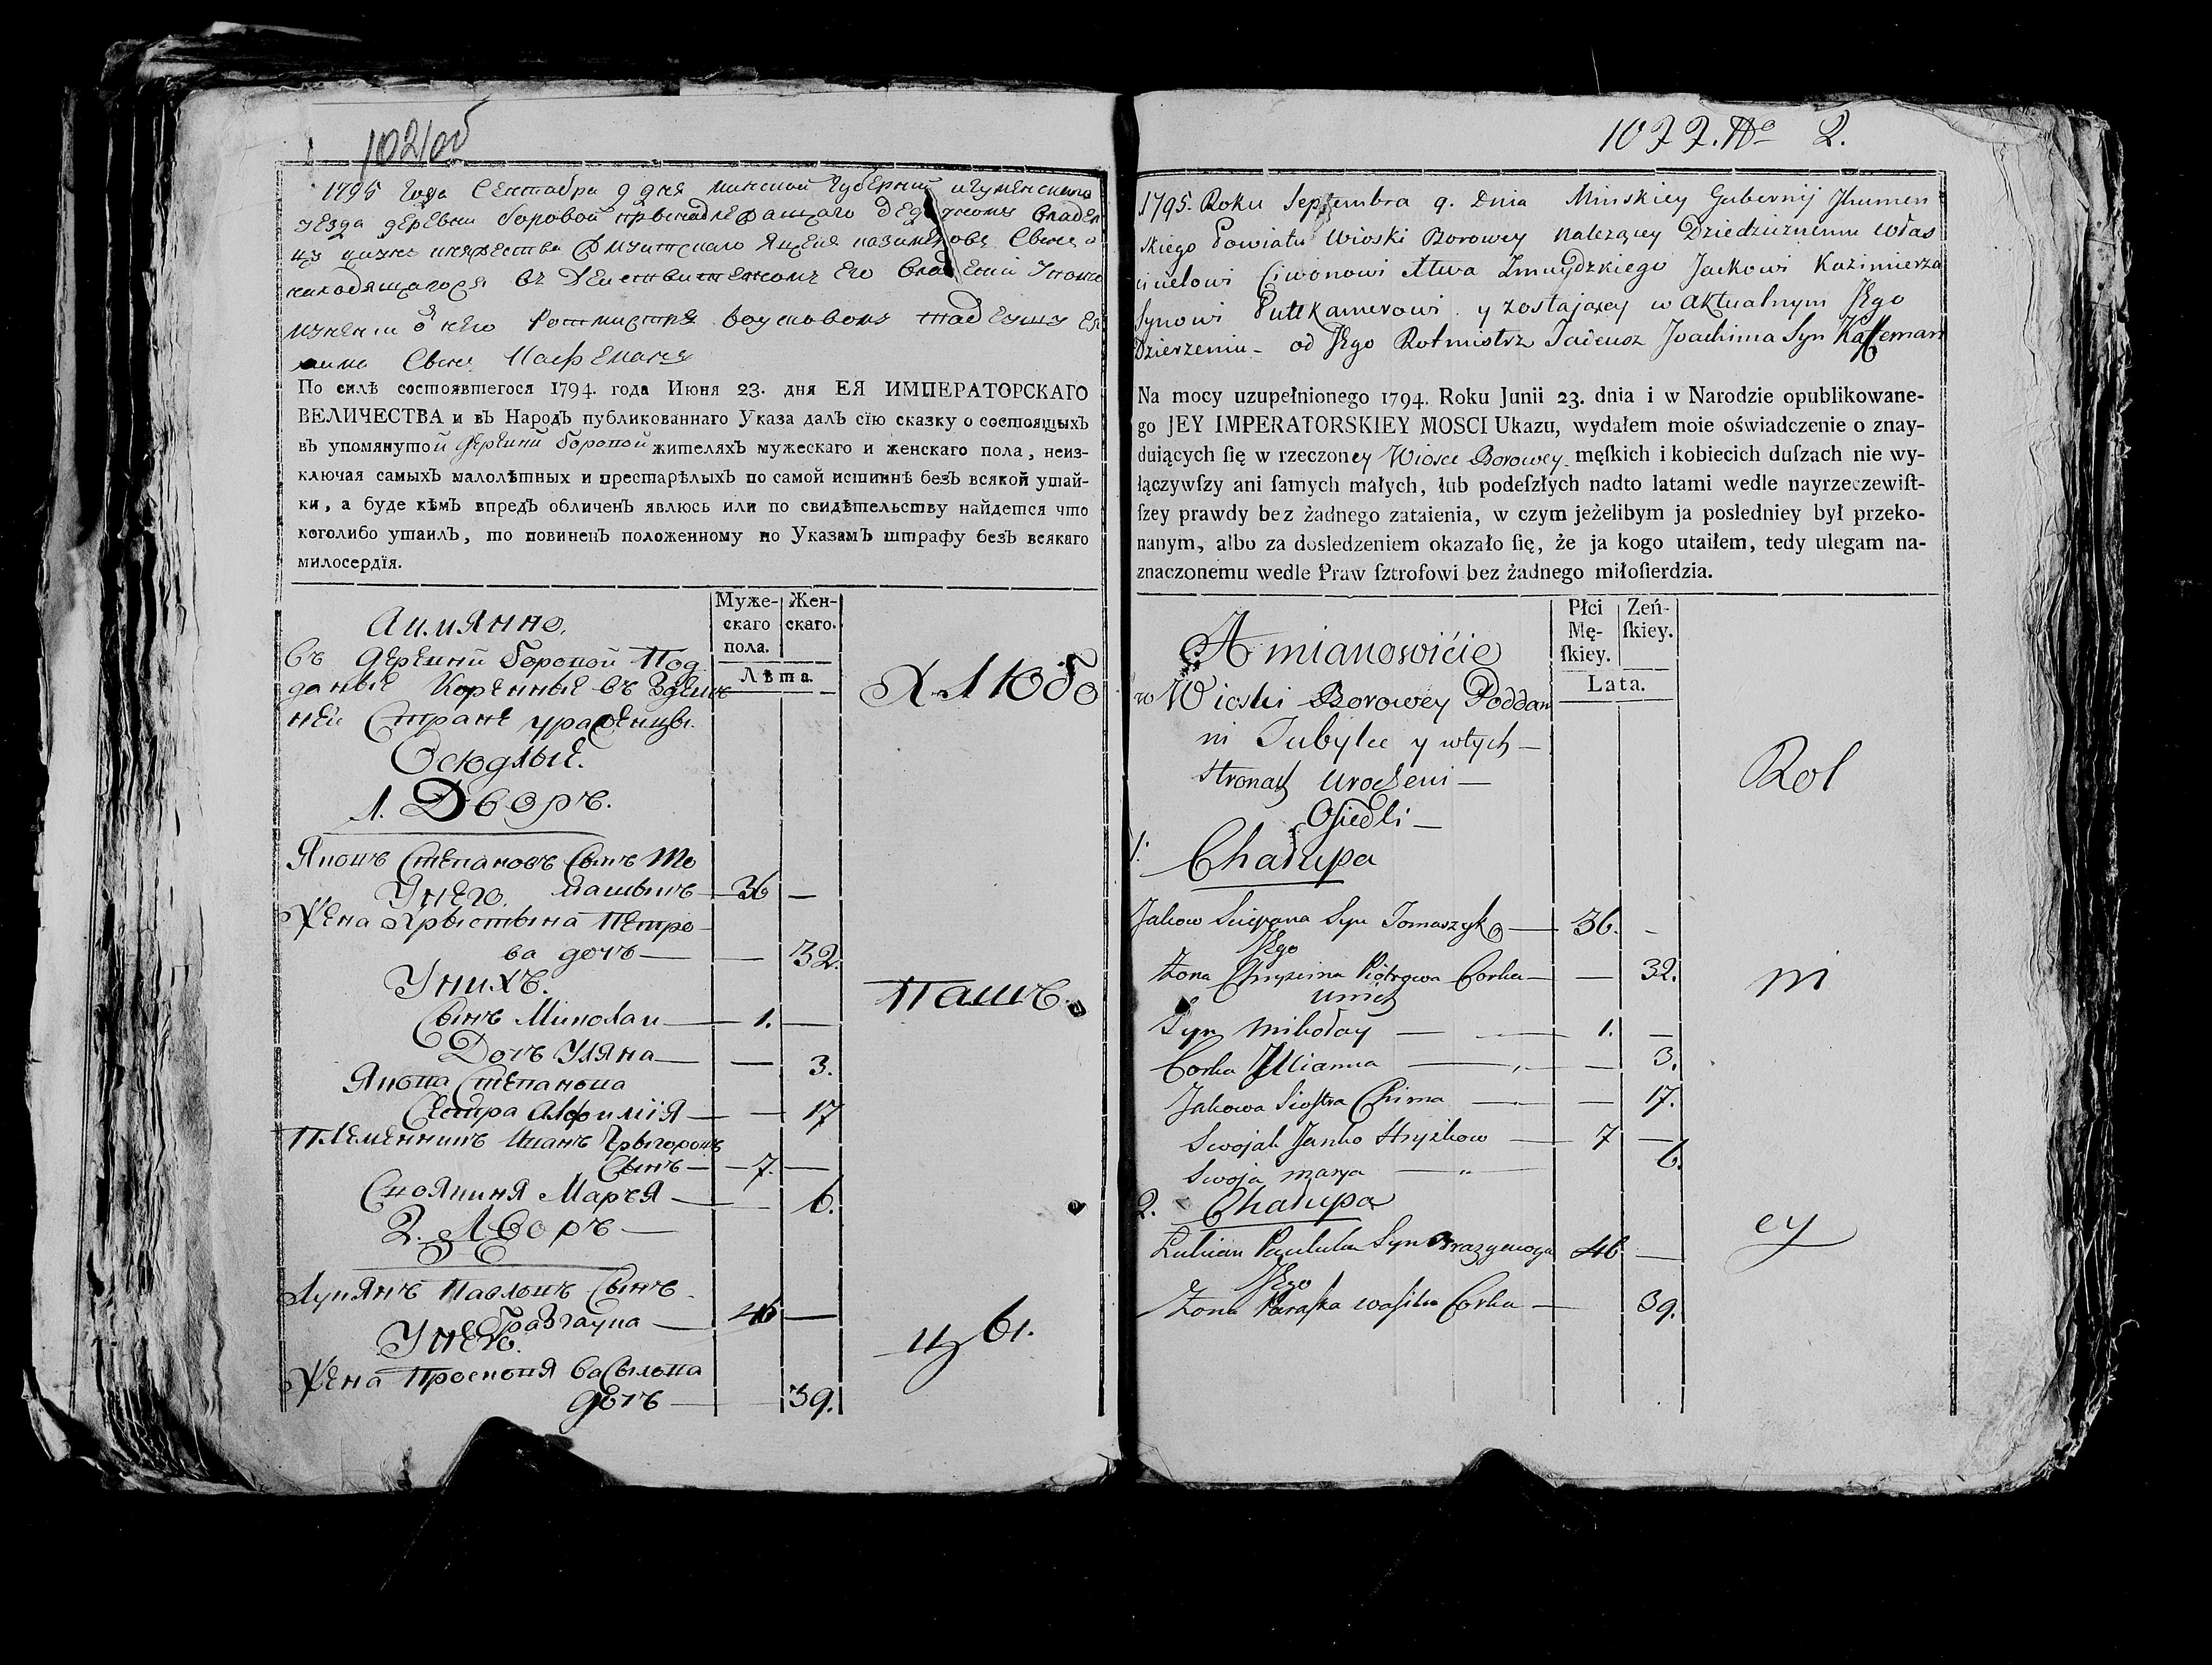 102/об
1795 Года Сентабра 9 дня минской Губерний игуменскаго
уезда деревни боровой прынадлежащаго дедичному владел
цу цивну княжества Яцкея казимерову Сыну и
находящагося въ Деиствительномъ Его Владений
от него Ротмистра Тадеушу
Сыну
По силѣ состоявшегося 1794. года Июня 23. дня ЕЯ ИМПЕРАТОРСКАГО
ВЕЛИЧЕСТВА и въ Народъ публикованнаго Указа далъ сїю сказку о состоящыхъ
въ упомянутой деревни боровой жителяхъ мужескаго и женскаго пола, неиз-
ключая самыхъ малолѣтных и престарѣлыхъ по самой истиннѣ безъ всякой утай-
ки, а буде кѣмъ впредъ обличенъ явлюсь или по свидѣтельству найдется что
коголибо утаилъ, то повиненъ положенному по Указамъ штрафу безъ всякаго
милосердїя.
Муже-скаго пола. Жен-скаго.
Лѣта.
Аимянно.
въ деревни боровой Под
даные Коренные въ Здеш
ней Стране уражЕнцы.
Оседлые.
1. Дворъ.
Яковъ Степановъ Сынъ То
машыкъ — 36 —
У него.
Жена Хрыстына Петро
ва дочъ — — 32.
У нихъ.
Сынъ Миколаи — 1. —
Дочъ Уляна — — 3.
Якова Степанова
Сестра Афимїя — — 17
Племенникъ Иванъ Грыгоровъ
Сынъ — 7. —
Своякиня Маръя — — 6.
2. Дворъ —
Лукянъ Павловъ Сынъ
— 46 —
У него.
Жена Просковя Васылова
дочъ — — 39.
Хлюбо
пашъ.
цы.
1077. No 2.
1795. Roku Septembra 9. Dnia Minskiey Gubernij Jhumen
skiego Powiatu Wioski Borowey należącey Dziedzicznemu Włas
cicielowi Ciwonowi Xtwa Zmuydzkiego Jackowi Kazimierza
Synowi Puttkamerowi y zostaiącey w aktualnym Jego
Dzierzeniu — od Jego Rotmistrz Tadeusz Joachima Syn
Na mocy uzupełnionego 1794. Roku Junii 23. dnia i w Narodzie opublikowane-
go JEY IMPERATORSKIEY MOSCI Ukazu, wydałem moie oświadczenie o znay-
duiących ſię w rzeczoney Wiosce Borowey męſkich i kobiecich duſzach nie wy-
łączywſzy ani ſamych małych, łub podeſzłych nadto latami wedle nayrzeczewiſt-
ſzey prawdy bez żadnego zataienia, w czym jeżelibym ja posledniey był przeko-
nanym, albo za dosledzeniem okazało ſię, że ja kogo utaiłem, tedy ulegam na-
znaczonemu wedle Praw ſztrofowi bez żadnego miłoſierdzia.
Płci Mę-ſkiey. Zeń-ſkiey.
Lata.
A mianowićie
w Wioski Borowey Poddan
ni Tubylce y w tych —
stronach urodzeni —
Osiedli —
1. Chałupa
Jakow Sciepana Syn Tomaszyk — 36. -
Jego
Zona Chryzcina Piotrowa Corka — — 32.
U nich
Syn Mikołay — 1. —
Corka Ulianna — — 3.
Jakowa Siostra Chima — — 17.
Swojak Janko Hryżkow — 7 —
Swoja marya — 6.
2. Chałupa
Łukian Pawluka Syn 46 —
Jego
Zona Paraska wasila Corka — 39.
Rol
ni
cy